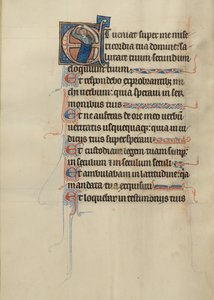 Et veniat super me mise
ricordia tua domine: sa
lutare tuum secundum
eloquium tuum
Et respondebo exprobrantibus mi
chi verbum: quia speravi in ser
monibus tuis
Et ne auferas de ore meo verbum
veritatis usquequaque: quia in iu
diciis tuis supersperavi
Et custodiam legem tuam semper:
in seculum et in seculum seculi
Et ambulabam in latitudine: quia
mandata tua exquisivi
Et loquebar in testimoniis tuis